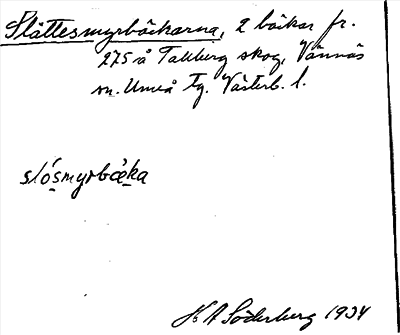 Slåttesmyrbäckarna, 2 bäckar fr.
275 å Tallberg skog, Vännäs
sn. Umeå tg. Västerb. l.
slósmyrbäka
H A Söderberg 1934